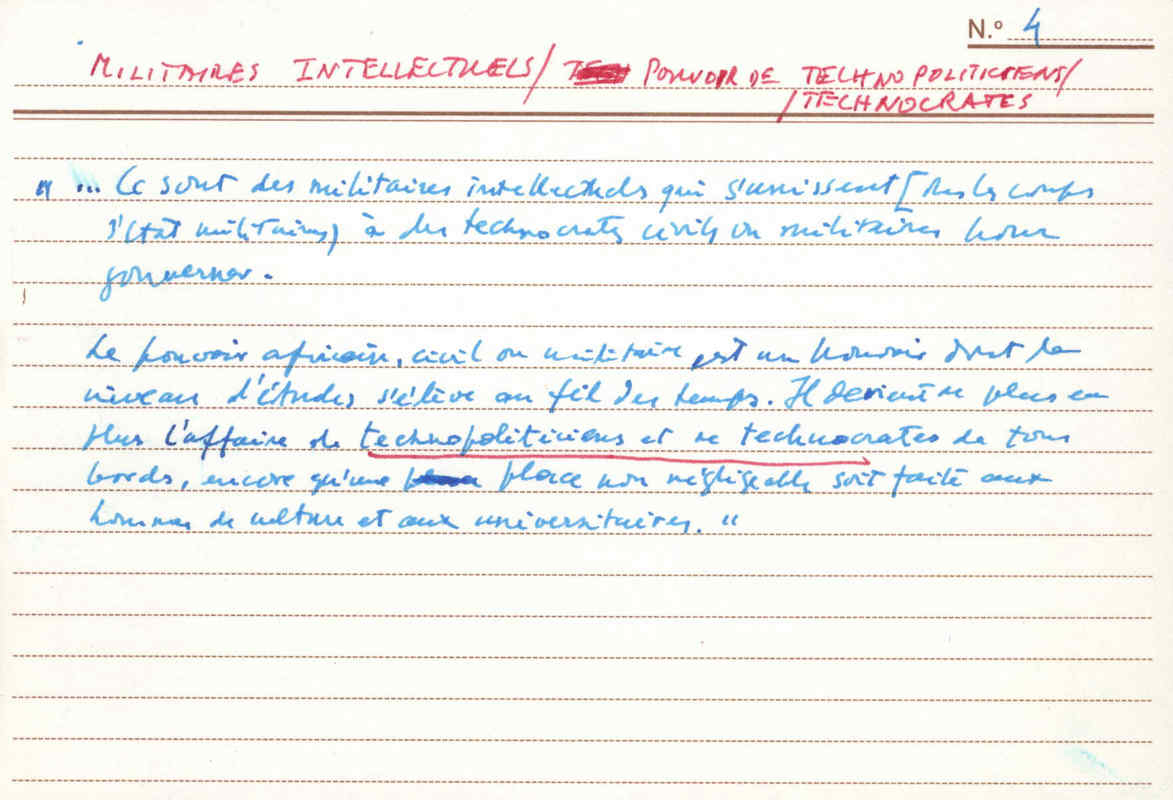 N.º 4
MILITAIRES INTELLECTUELS/ POUVOIR DE TECHNOPOLITICIENS/
/TECHNOCRATES
" ... Ce sont des militaires intellectuels qui s'unissent [ les coups
d'État militaires) à des technocrates civils ou militaires pour
gouverner.
Le pouvoir africain, civil ou militaire, est un pouvoir dont le
niveau d'études s'élève au fil des temps. Il devient de plus en
plus l'affaire de technopoliticiens et de technocrates de tous
bords, encore qu'une place non négligeable soit faite aux
hommes de culture et aux universitaires. "